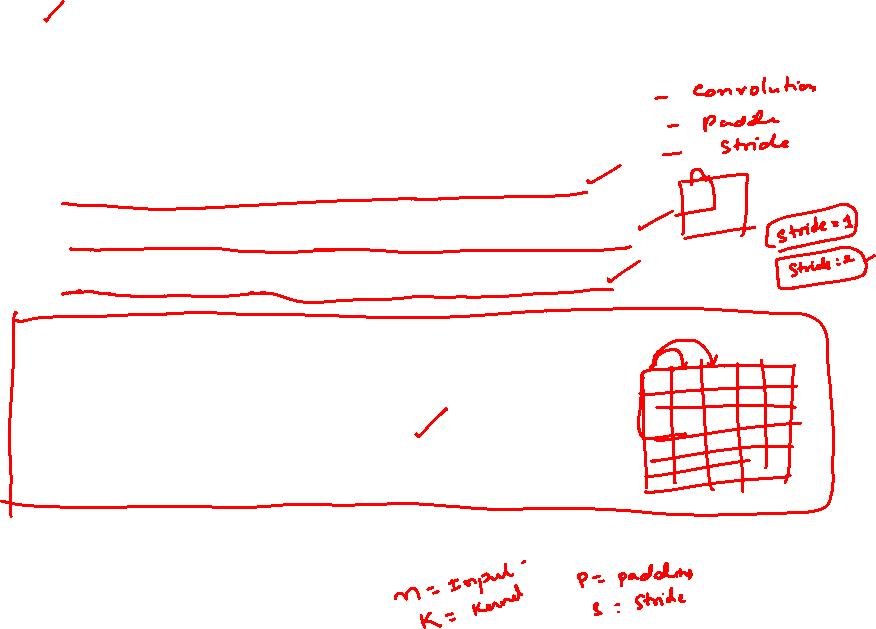 - Convolution
- Padd
- Stride
Stride = 1
Stride = 2
n = Input
K = Kernel
P = padding
S = Stride